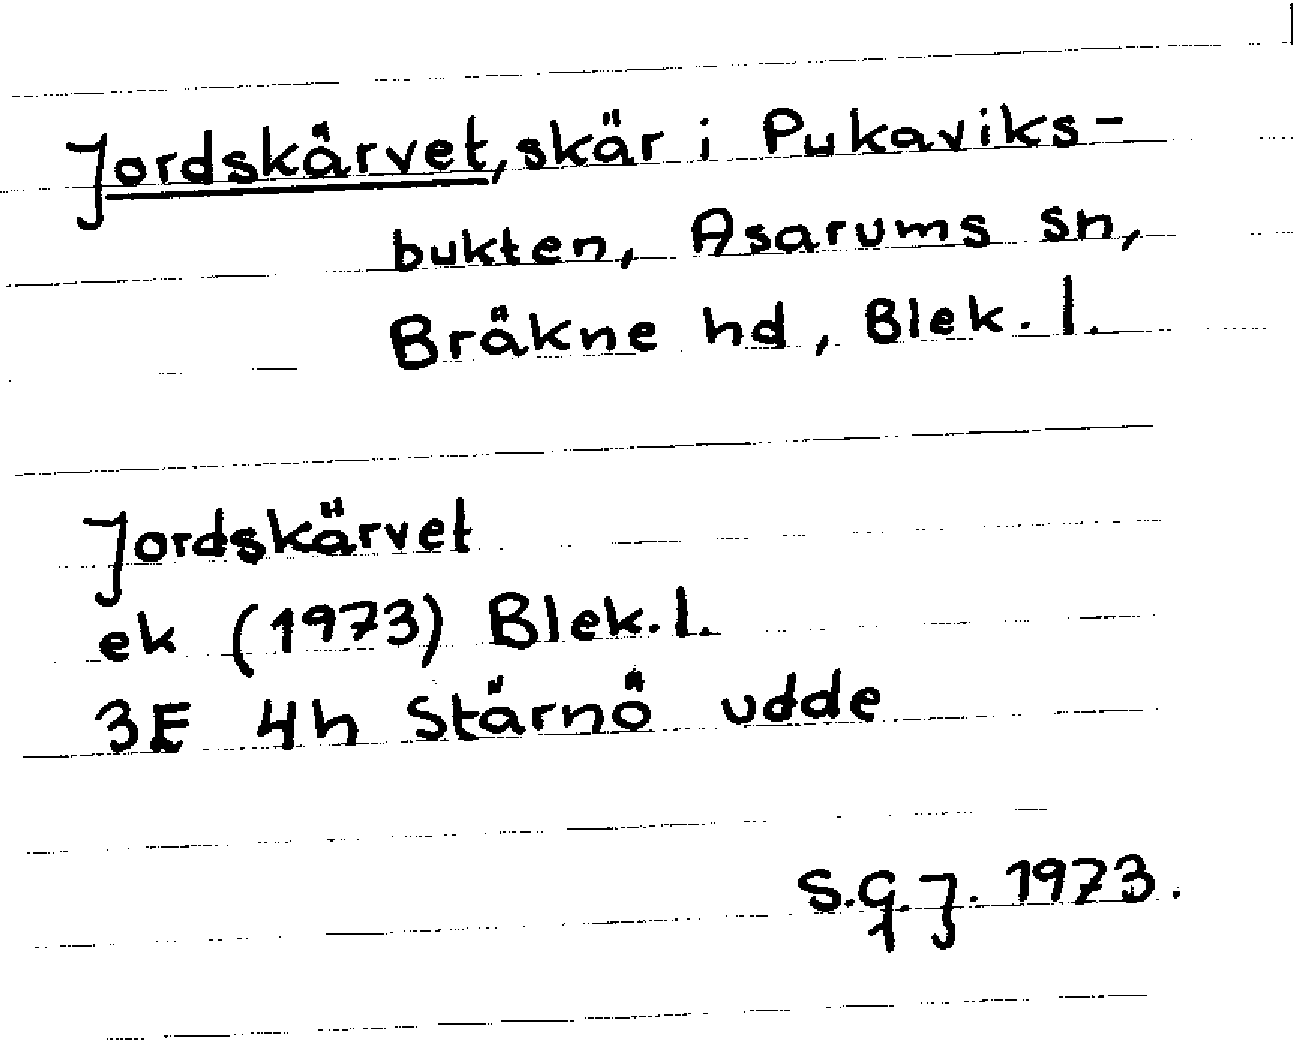 Jordskärvet, skär i Pukaviks-
bukten, Asarums sn,
Bräkne hd, Blek. l.
Jordskärvet
ek (1973) Blek. l.
3E 4h Stärnö udde
S.G.J. 1973.